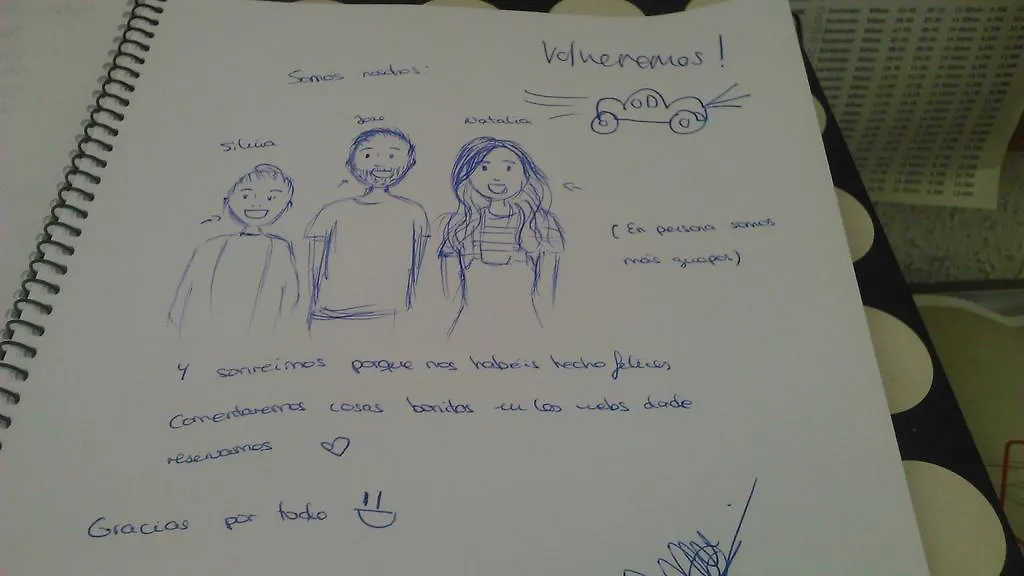 Volveremos!
Somos nosotros.
Silvia
Jose
Natalia
(En persona somos
más guapos)
Y sonreímos porque nos habéis hecho felices
Comentaremos cosas bonitas en las webs dode
reservamos
Gracias por todo